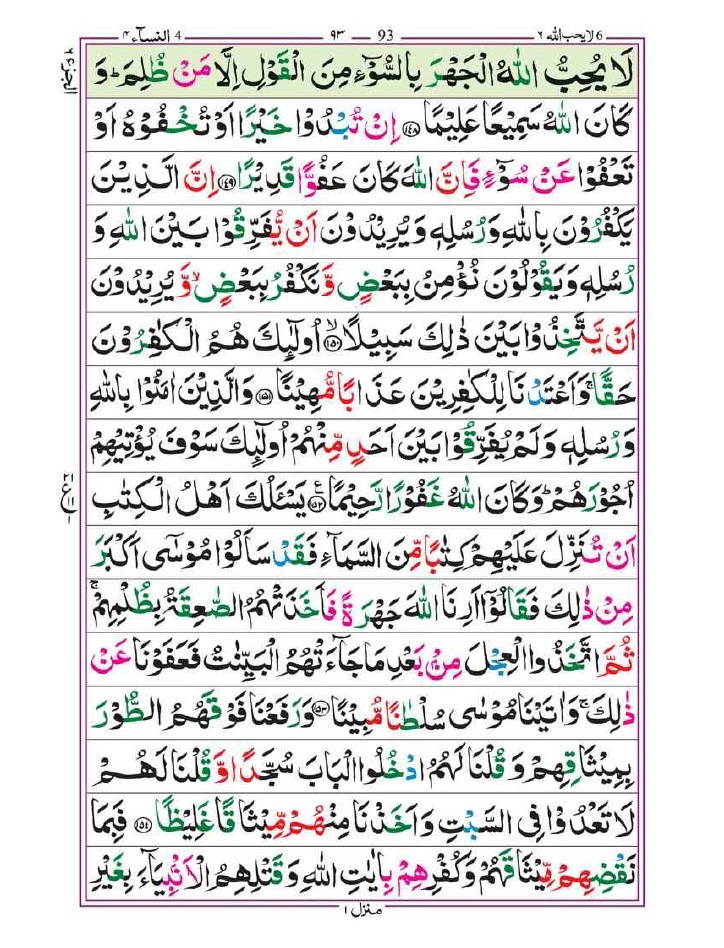 6 لا یحب اللہ ٦ — 93 — ٩٣ — 4 النسآء ٤
الجزء ٦
لَا يُحِبُّ اللّٰهُ الْجَهْرَ بِالسُّوْٓءِ مِنَ الْقَوْلِ اِلَّا مَنْ ظُلِمَ ؕ وَ
كَانَ اللّٰهُ سَمِيْعًا عَلِيْمًا ﴿۱۴۸﴾ اِنْ تُبْدُوْا خَيْرًا اَوْ تُخْفُوْهُ اَوْ
تَعْفُوْا عَنْ سُوْٓءٍ فَاِنَّ اللّٰهَ كَانَ عَفُوًّا قَدِيْرًا ﴿۱۴۹﴾ اِنَّ الَّذِيْنَ
يَكْفُرُوْنَ بِاللّٰهِ وَرُسُلِهٖ وَيُرِيْدُوْنَ اَنْ يُّفَرِّقُوْا بَيْنَ اللّٰهِ وَ
رُسُلِهٖ وَيَقُوْلُوْنَ نُؤْمِنُ بِبَعْضٍ وَّنَكْفُرُ بِبَعْضٍ ۙ وَّيُرِيْدُوْنَ
اَنْ يَّتَّخِذُوْا بَيْنَ ذٰلِكَ سَبِيْلًا ﴿۱۵۰﴾ ۙ اُولٰٓئِكَ هُمُ الْكٰفِرُوْنَ
حَقًّا ۚ وَاَعْتَدْنَا لِلْكٰفِرِيْنَ عَذَابًا مُّهِيْنًا ﴿۱۵۱﴾ وَالَّذِيْنَ اٰمَنُوْا بِاللّٰهِ
وَرُسُلِهٖ وَلَمْ يُفَرِّقُوْا بَيْنَ اَحَدٍ مِّنْهُمْ اُولٰٓئِكَ سَوْفَ يُؤْتِيْهِمْ
اُجُوْرَهُمْ ؕ وَكَانَ اللّٰهُ غَفُوْرًا رَّحِيْمًا ﴿۱۵۲﴾ ع يَسْئَلُكَ اَهْلُ الْكِتٰبِ
اَنْ تُنَزِّلَ عَلَيْهِمْ كِتٰبًا مِّنَ السَّمَآءِ فَقَدْ سَاَلُوْا مُوْسٰٓى اَكْبَرَ
مِنْ ذٰلِكَ فَقَالُوْٓا اَرِنَا اللّٰهَ جَهْرَةً فَاَخَذَتْهُمُ الصّٰعِقَةُ بِظُلْمِهِمْ ۚ
ثُمَّ اتَّخَذُوا الْعِجْلَ مِنْۢ بَعْدِ مَا جَآءَتْهُمُ الْبَيِّنٰتُ فَعَفَوْنَا عَنْ
ذٰلِكَ ۚ وَاٰتَيْنَا مُوْسٰى سُلْطٰنًا مُّبِيْنًا ﴿۱۵۳﴾ وَرَفَعْنَا فَوْقَهُمُ الطُّوْرَ
بِمِيْثَاقِهِمْ وَقُلْنَا لَهُمُ ادْخُلُوا الْبَابَ سُجَّدًا وَّقُلْنَا لَهُمْ
لَا تَعْدُوْا فِى السَّبْتِ وَاَخَذْنَا مِنْهُمْ مِّيْثَاقًا غَلِيْظًا ﴿۱۵۴﴾ فَبِمَا
نَقْضِهِمْ مِّيْثَاقَهُمْ وَكُفْرِهِمْ بِاٰيٰتِ اللّٰهِ وَقَتْلِهِمُ الْاَنْۢبِيَآءَ بِغَيْرِ
منزل ١